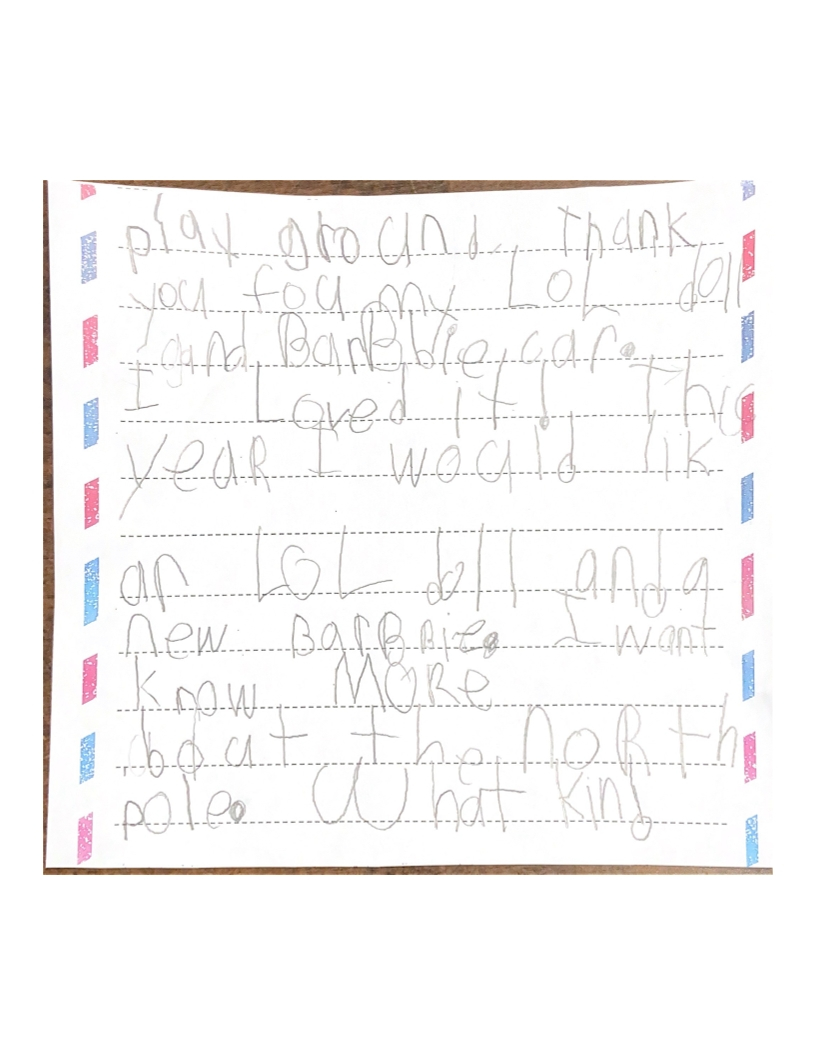 play ground. Thank
you fou my LOL doll
and BarBbie car.
I Loved it! This
yeaR I would lik
an LOL doll and a
new BarBBie. I want
know MORe
about the noRth
pole. What kind